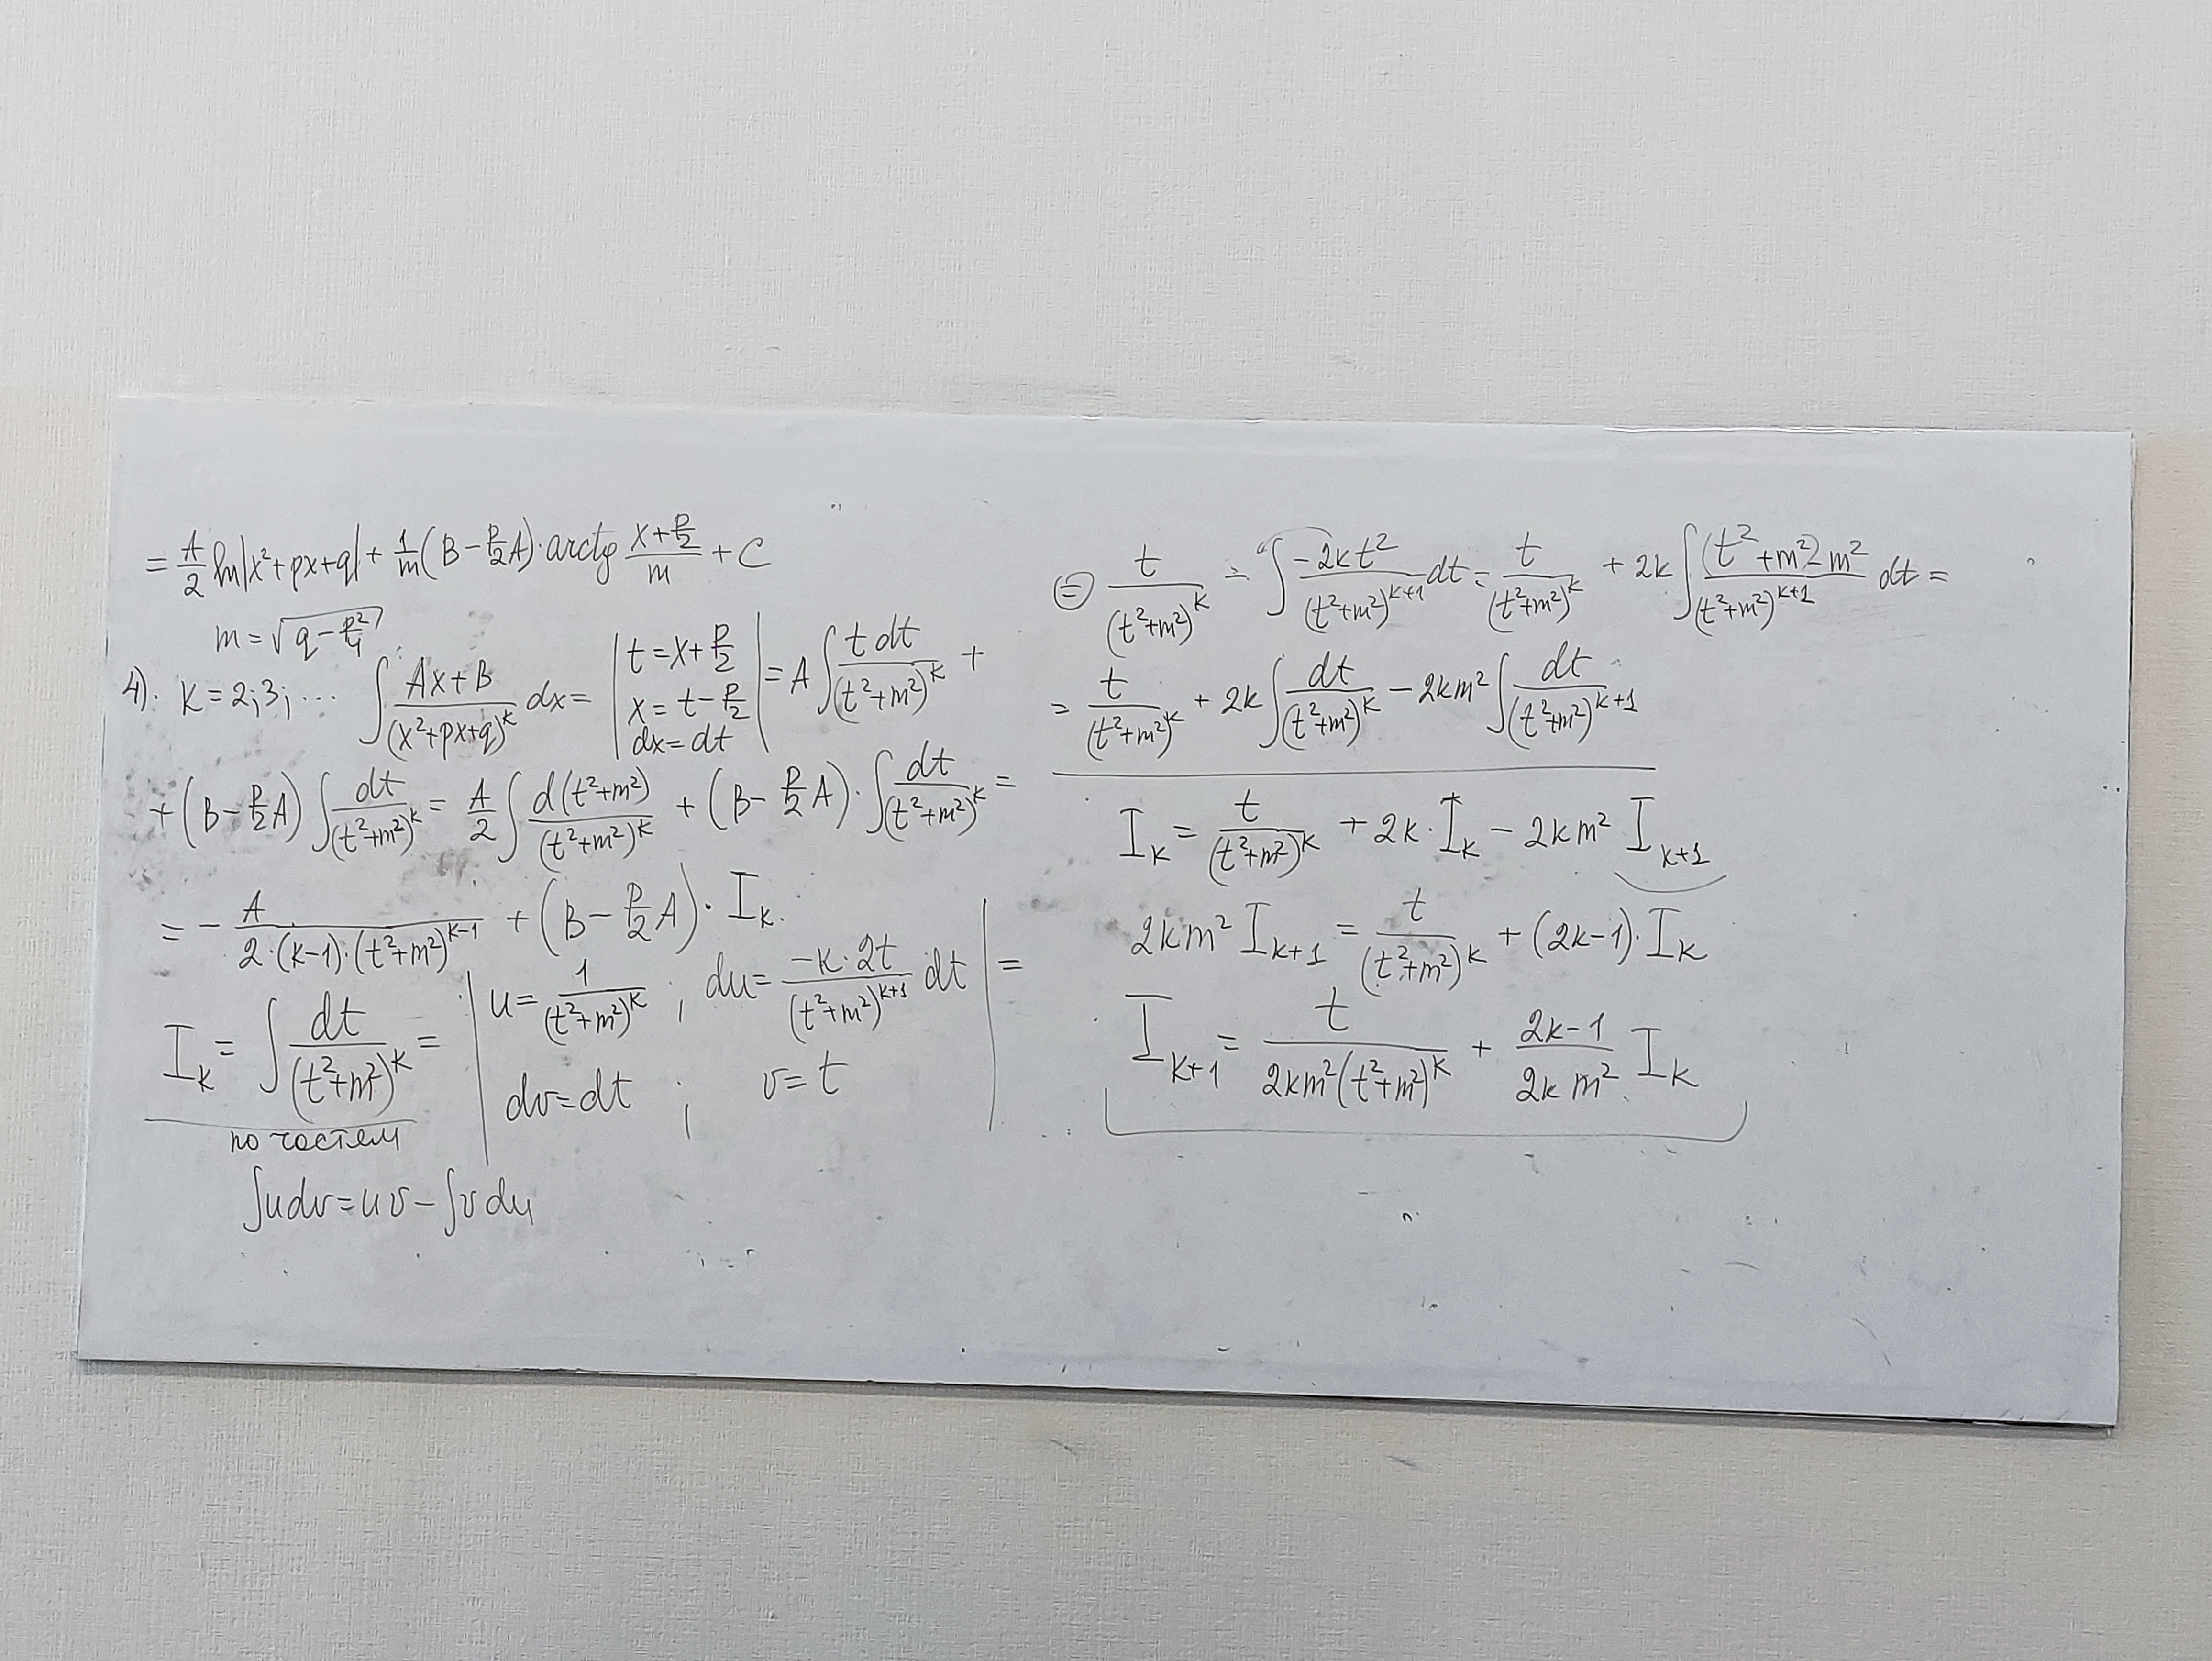 = A/2 ln|x²+px+q| + 1/m (B − p/2 A)· arctg (x + p/2)/m + C
m = √(q − p²/4)
4). K = 2; 3; ... ∫ (Ax+B)/(x²+px+q)^k dx = | t = x + p/2 ; x = t − p/2 ; dx = dt | = A ∫ t dt/(t²+m²)^k +
+ (B − p/2 A) ∫ dt/(t²+m²)^k = A/2 ∫ d(t²+m²)/(t²+m²)^k + (B − p/2 A)· ∫ dt/(t²+m²)^k =
= − A/(2·(k−1)·(t²+m²)^(k−1)) + (B − p/2 A)· I_k.
I_k = ∫ dt/(t²+m²)^k = | u = 1/(t²+m²)^k ; du = (−k·2t)/(t²+m²)^(k+1) dt ; dv = dt ; v = t | =
по частям
∫u dv = uv − ∫v du
⊜ t/(t²+m²)^k − ∫ (−2kt²)/(t²+m²)^(k+1) dt = t/(t²+m²)^k + 2k ∫ ((t²+m²)−m²)/(t²+m²)^(k+1) dt =
= t/(t²+m²)^k + 2k ∫ dt/(t²+m²)^k − 2km² ∫ dt/(t²+m²)^(k+1)
I_k = t/(t²+m²)^k + 2k· I_k − 2km² I_(k+1)
2km² I_(k+1) = t/(t²+m²)^k + (2k−1)· I_k
I_(k+1) = t/(2km²(t²+m²)^k) + (2k−1)/(2km²) I_k